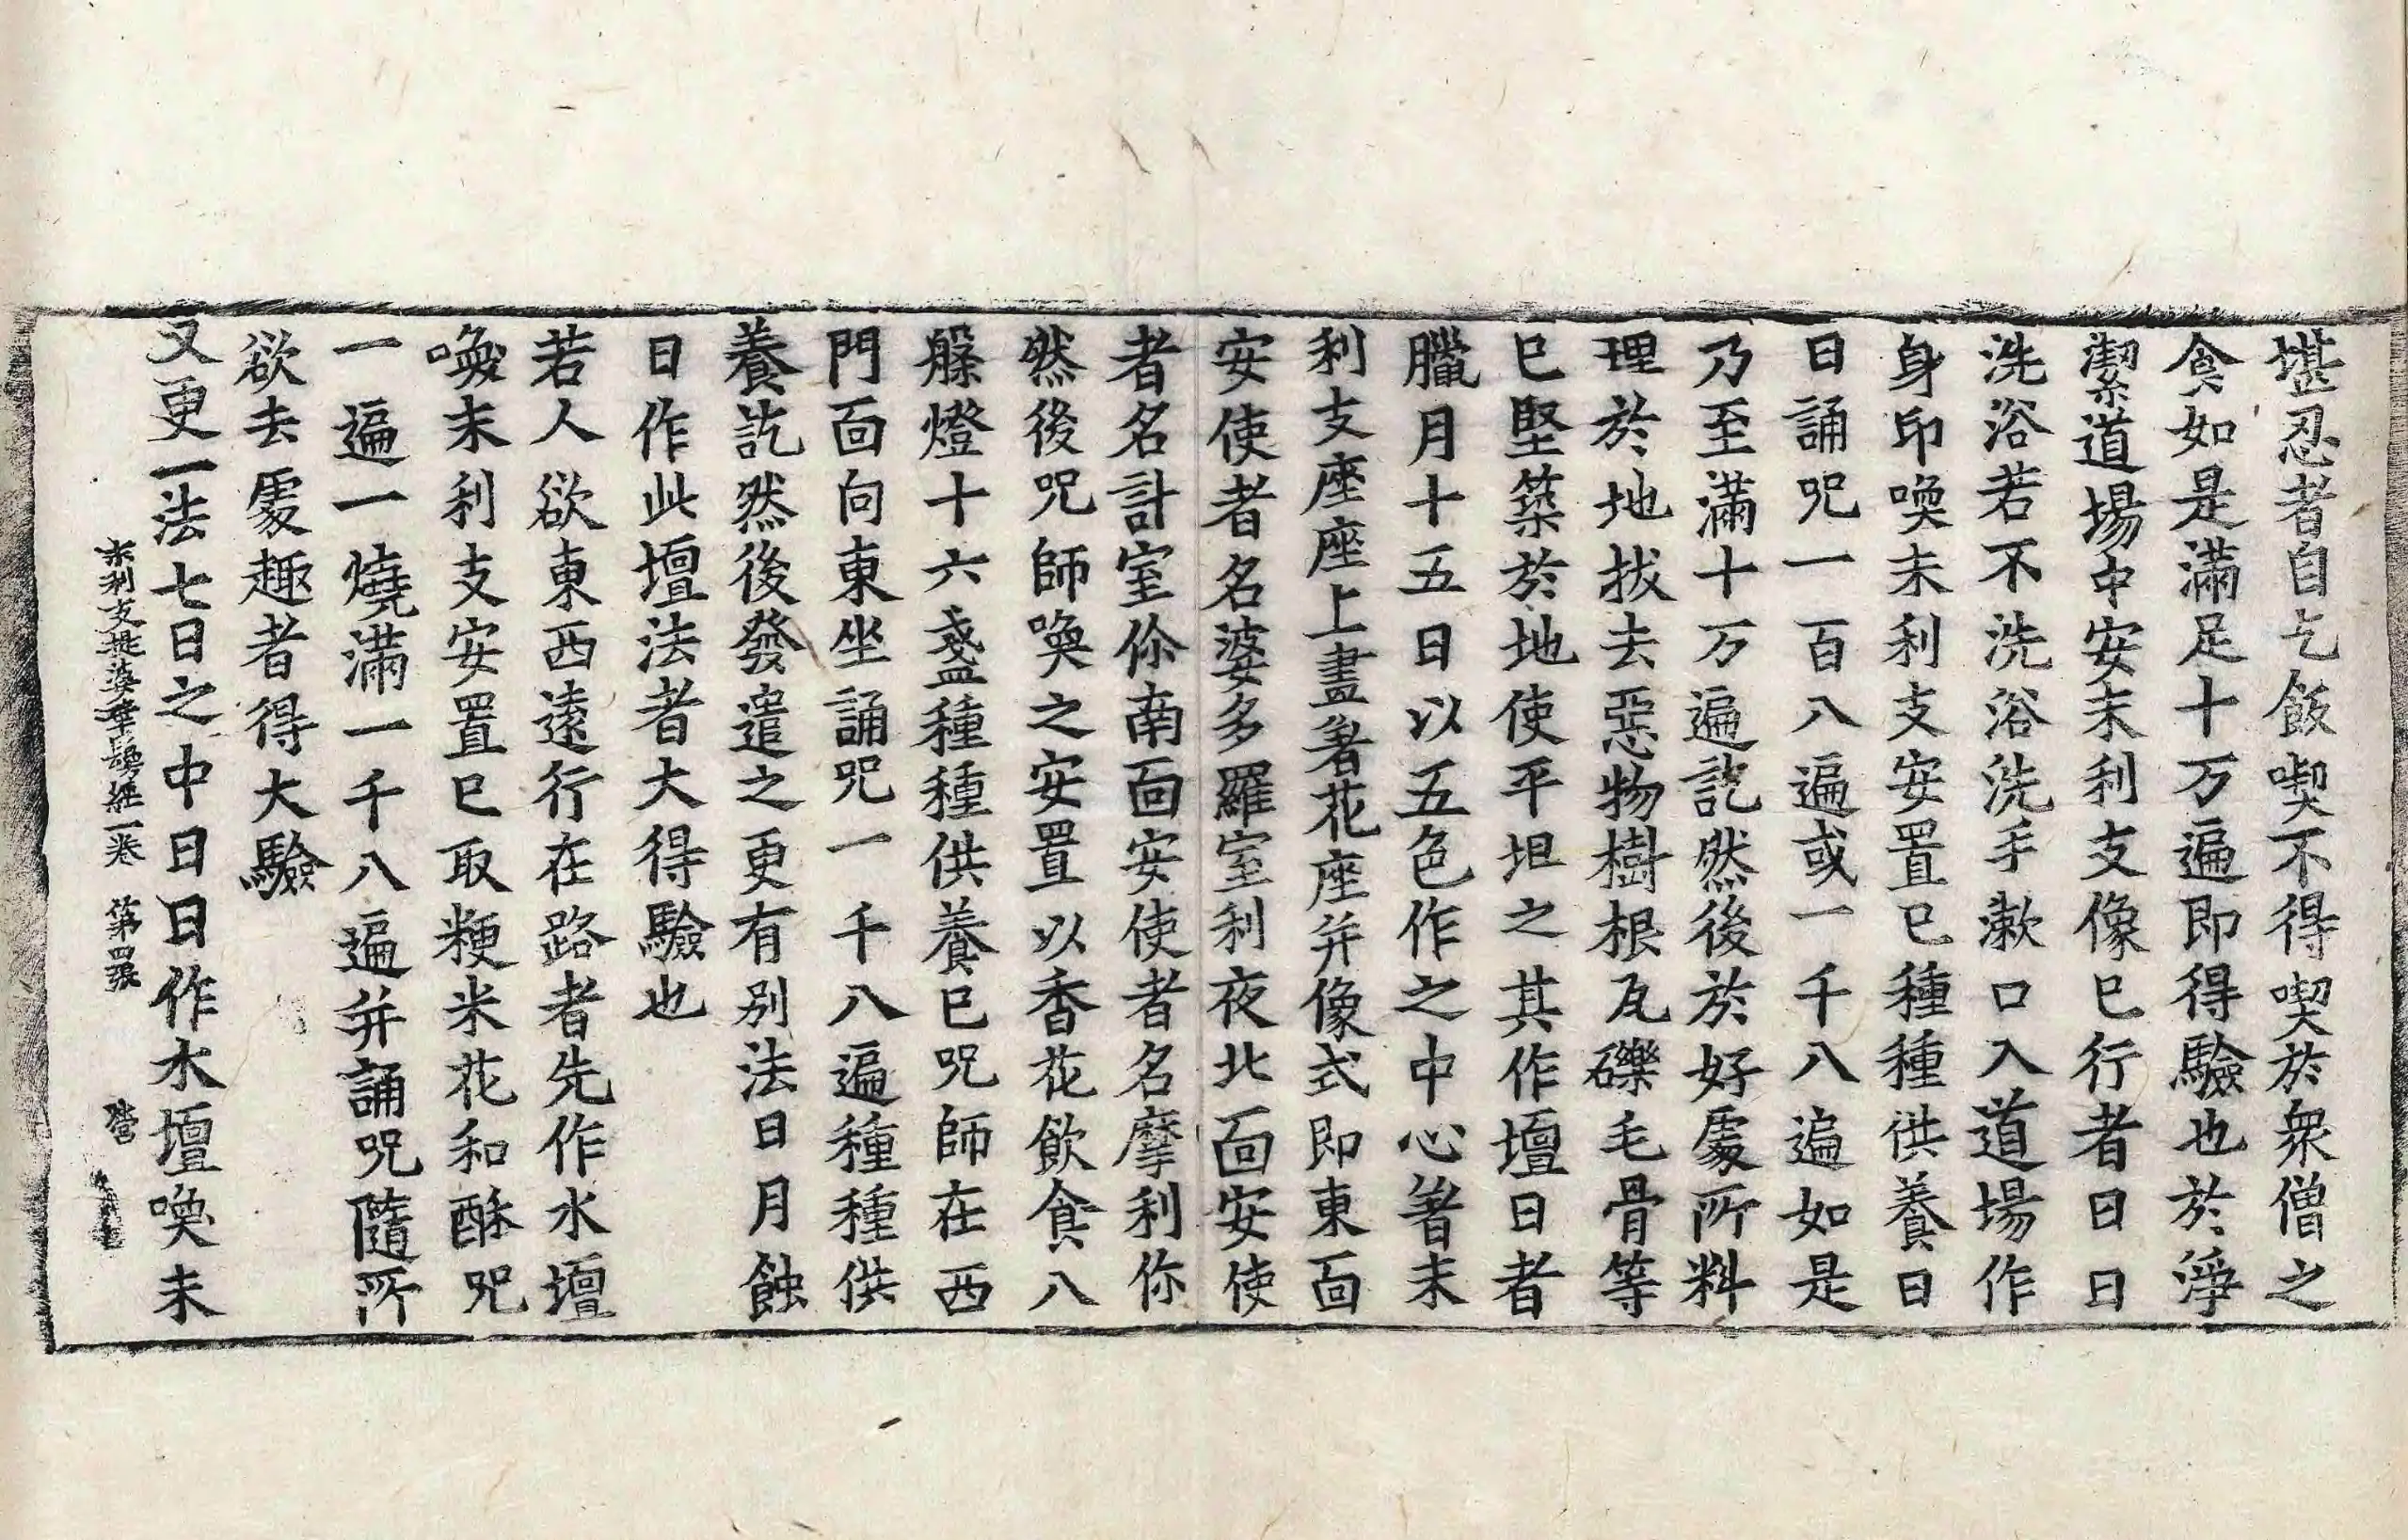 堪忍者自乞飯喫不得喫於衆僧之
食如是滿足十万遍即得驗也於淨
潔道場中安末利支像已行者日日
洗浴若不洗浴洗手漱口入道場作
身印喚末利支安置已種種供養日
日誦呪一百八遍或一千八遍如是
乃至滿十万遍訖然後於好處所料
理於地拔去惡物樹根瓦礫毛骨等
已堅築於地使平坦之其作壇日者
臘月十五日以五色作之中心著末
利支座座上畫著花座并像式即東面
安使者名婆多羅室利夜北面安使
者名計室你南面安使者名摩利你
然後呪師喚之安置以香花飲食八
槃燈十六盞種種供養已呪師在西
門面向東坐誦呪一千八遍種種供
養訖然後發遣之更有別法日月蝕
日作此壇法者大得驗也
若人欲東西遠行在路者先作水壇
喚末利支安置已取粳米花和酥呪
一遍一燒滿一千八遍并誦呪隨所
欲去處趣者得大驗
又更一法七日之中日日作水壇喚末
末利支提婆華鬘經一卷 第四張